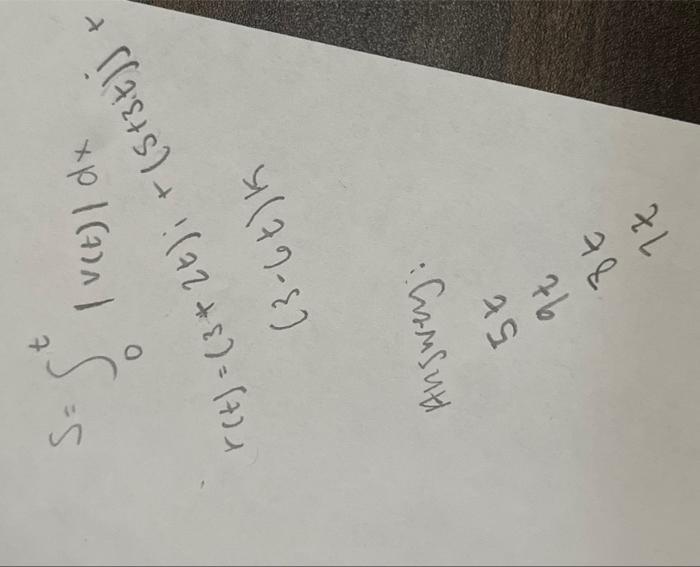 S = ∫₀ᵗ |v(t)| dx
r(t) = (3+2t)i + (5+3t)j +
(3-6t)k
Answers:
5t
9t
3t
7t